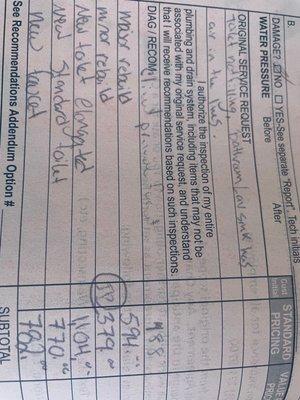 B.
DAMAGE? NO YES-See separate "Report". Tech initials
WATER PRESSURE Before After
ORIGINAL SERVICE REQUEST
Toilet not filling, bathroom Lav sink has
air in the lines.
Cust. Initial STANDARD PRICING VALUE
I authorize the inspection of my entire
plumbing and drain system, including items that may not be
associated with my original service request, and understand
that I will receive recommendations based on such inspections.
DIAG / RECOM
major rebuild 594.
minor rebuild 379.00
New toilet Elongated 1104.
New Standard toilet 770.00
New faucet 792
See Recommendations Addendum Option # SUBTOTAL